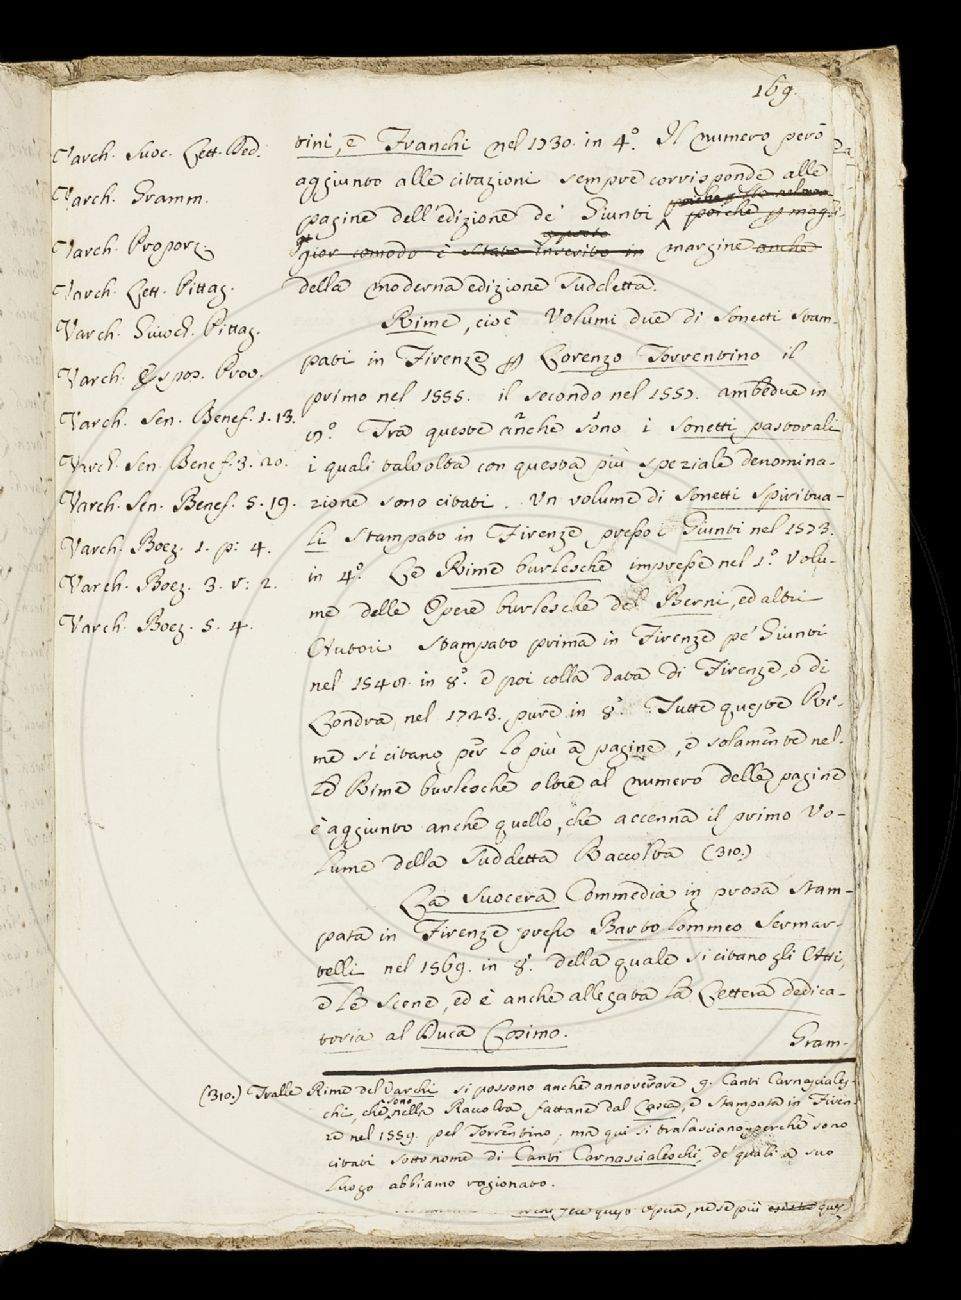 169.
Varch. Suoc. Lett. Ded.
Varch. Gramm.
Varch. Proporz.
Varch. Lett. Pittag.
Varch. Giuoch. Pittag.
Varch. Espos. Prov.
Varch. Sen. Benef. 1. 13.
Varch. Sen. Benef. 3. 20.
Varch. Sen. Benef. 5. 19.
Varch. Boez. 1. p: 4.
Varch. Boez. 3. v: 2.
Varch. Boez. 5. 4.
tini, e Franchi nel 1730. in 4.º Il numero però
aggiunto alle citazioni sempre corrisponde alle
pagine dell'edizione de' Giunti poiche p mag-
gior comodo è stato inserito in margine anche
della moderna edizione suddetta.
Rime, cioè Volumi due di Sonetti stam-
pati in Firenze p Lorenzo Torrentino il
primo nel 1555. il secondo nel 1557. ambedue in
8.º Tra queste anche sono i sonetti pastorali
i quali talvolta con questa più speziale denomina-
zione sono citati. Un volume di Sonetti Spiritua-
li stampato in Firenze presso i Giunti nel 1573.
in 4.º Le Rime burlesche impresse nel 1.º volu-
me delle Opere burlesche del Berni, ed altri
Autori stampato prima in Firenze pe' Giunti
nel 1548. in 8.º e poi colla data di Firenze, o di
Londra nel 1723. pure in 8.º Tutte queste Ri-
me si citano per lo più a pagine, e solamente nel-
le Rime burlesche oltre al numero delle pagine
è aggiunto anche quello, che accenna il primo Vo-
lume della suddetta Raccolta (310.)
La Suocera Commedia in prosa stam-
pata in Firenze presso Bartolommeo Sermar-
telli nel 1569. in 8.º della quale si citano gli Atti,
e le Scene, ed è anche allegata la Lettera dedica-
toria al Duca Cosimo.
Gram-
(310.) Tralle Rime del Varchi si possono anche annoverare 9. Canti Carnasciales-
chi, che sono nella Raccolta fattane dal Lasca, e stampata in Firen-
ze nel 1559. pel Torrentino, ma qui si tralasciano, perchè sono
citati sotto nome di Canti Carnascialeschi, de' quali a suo
luogo abbiamo ragionato.